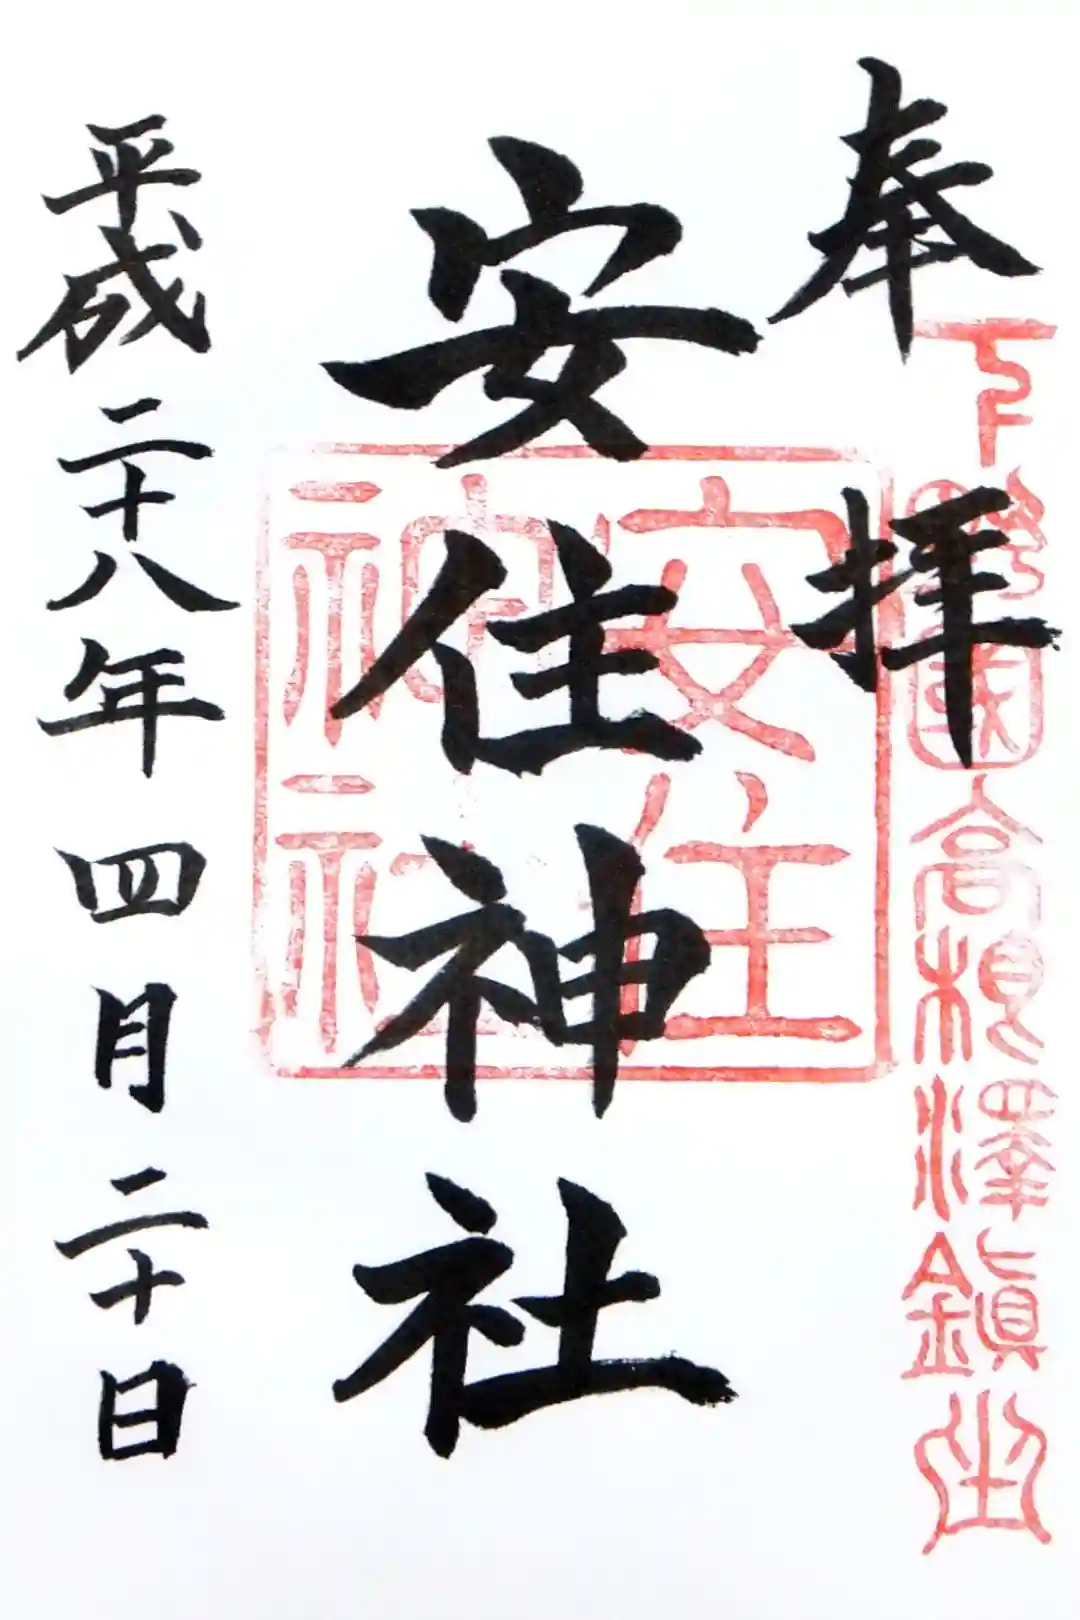 奉拝
下野國高根澤鎮坐
安住神社
安住神社
平成二十八年四月二十日